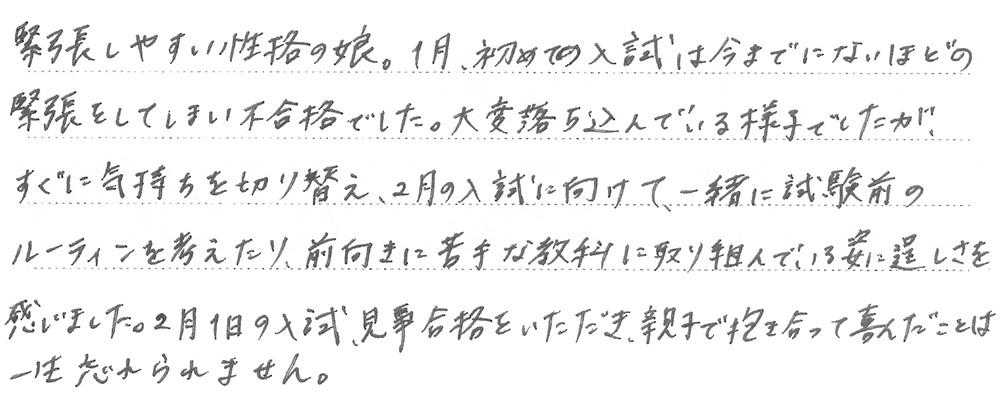 緊張しやすい性格の娘。1月、初めての入試は今までにないほどの
緊張をしてしまい不合格でした。大変落ち込んでいる様子でしたが、
すぐに気持ちを切り替え、2月の入試に向けて、一緒に試験前の
ルーティンを考えたり、前向きに苦手な教科に取り組んでいる姿に逞しさを
感じました。2月1日の入試、見事合格をいただき、親子で抱き合って喜んだことは
一生忘れられません。